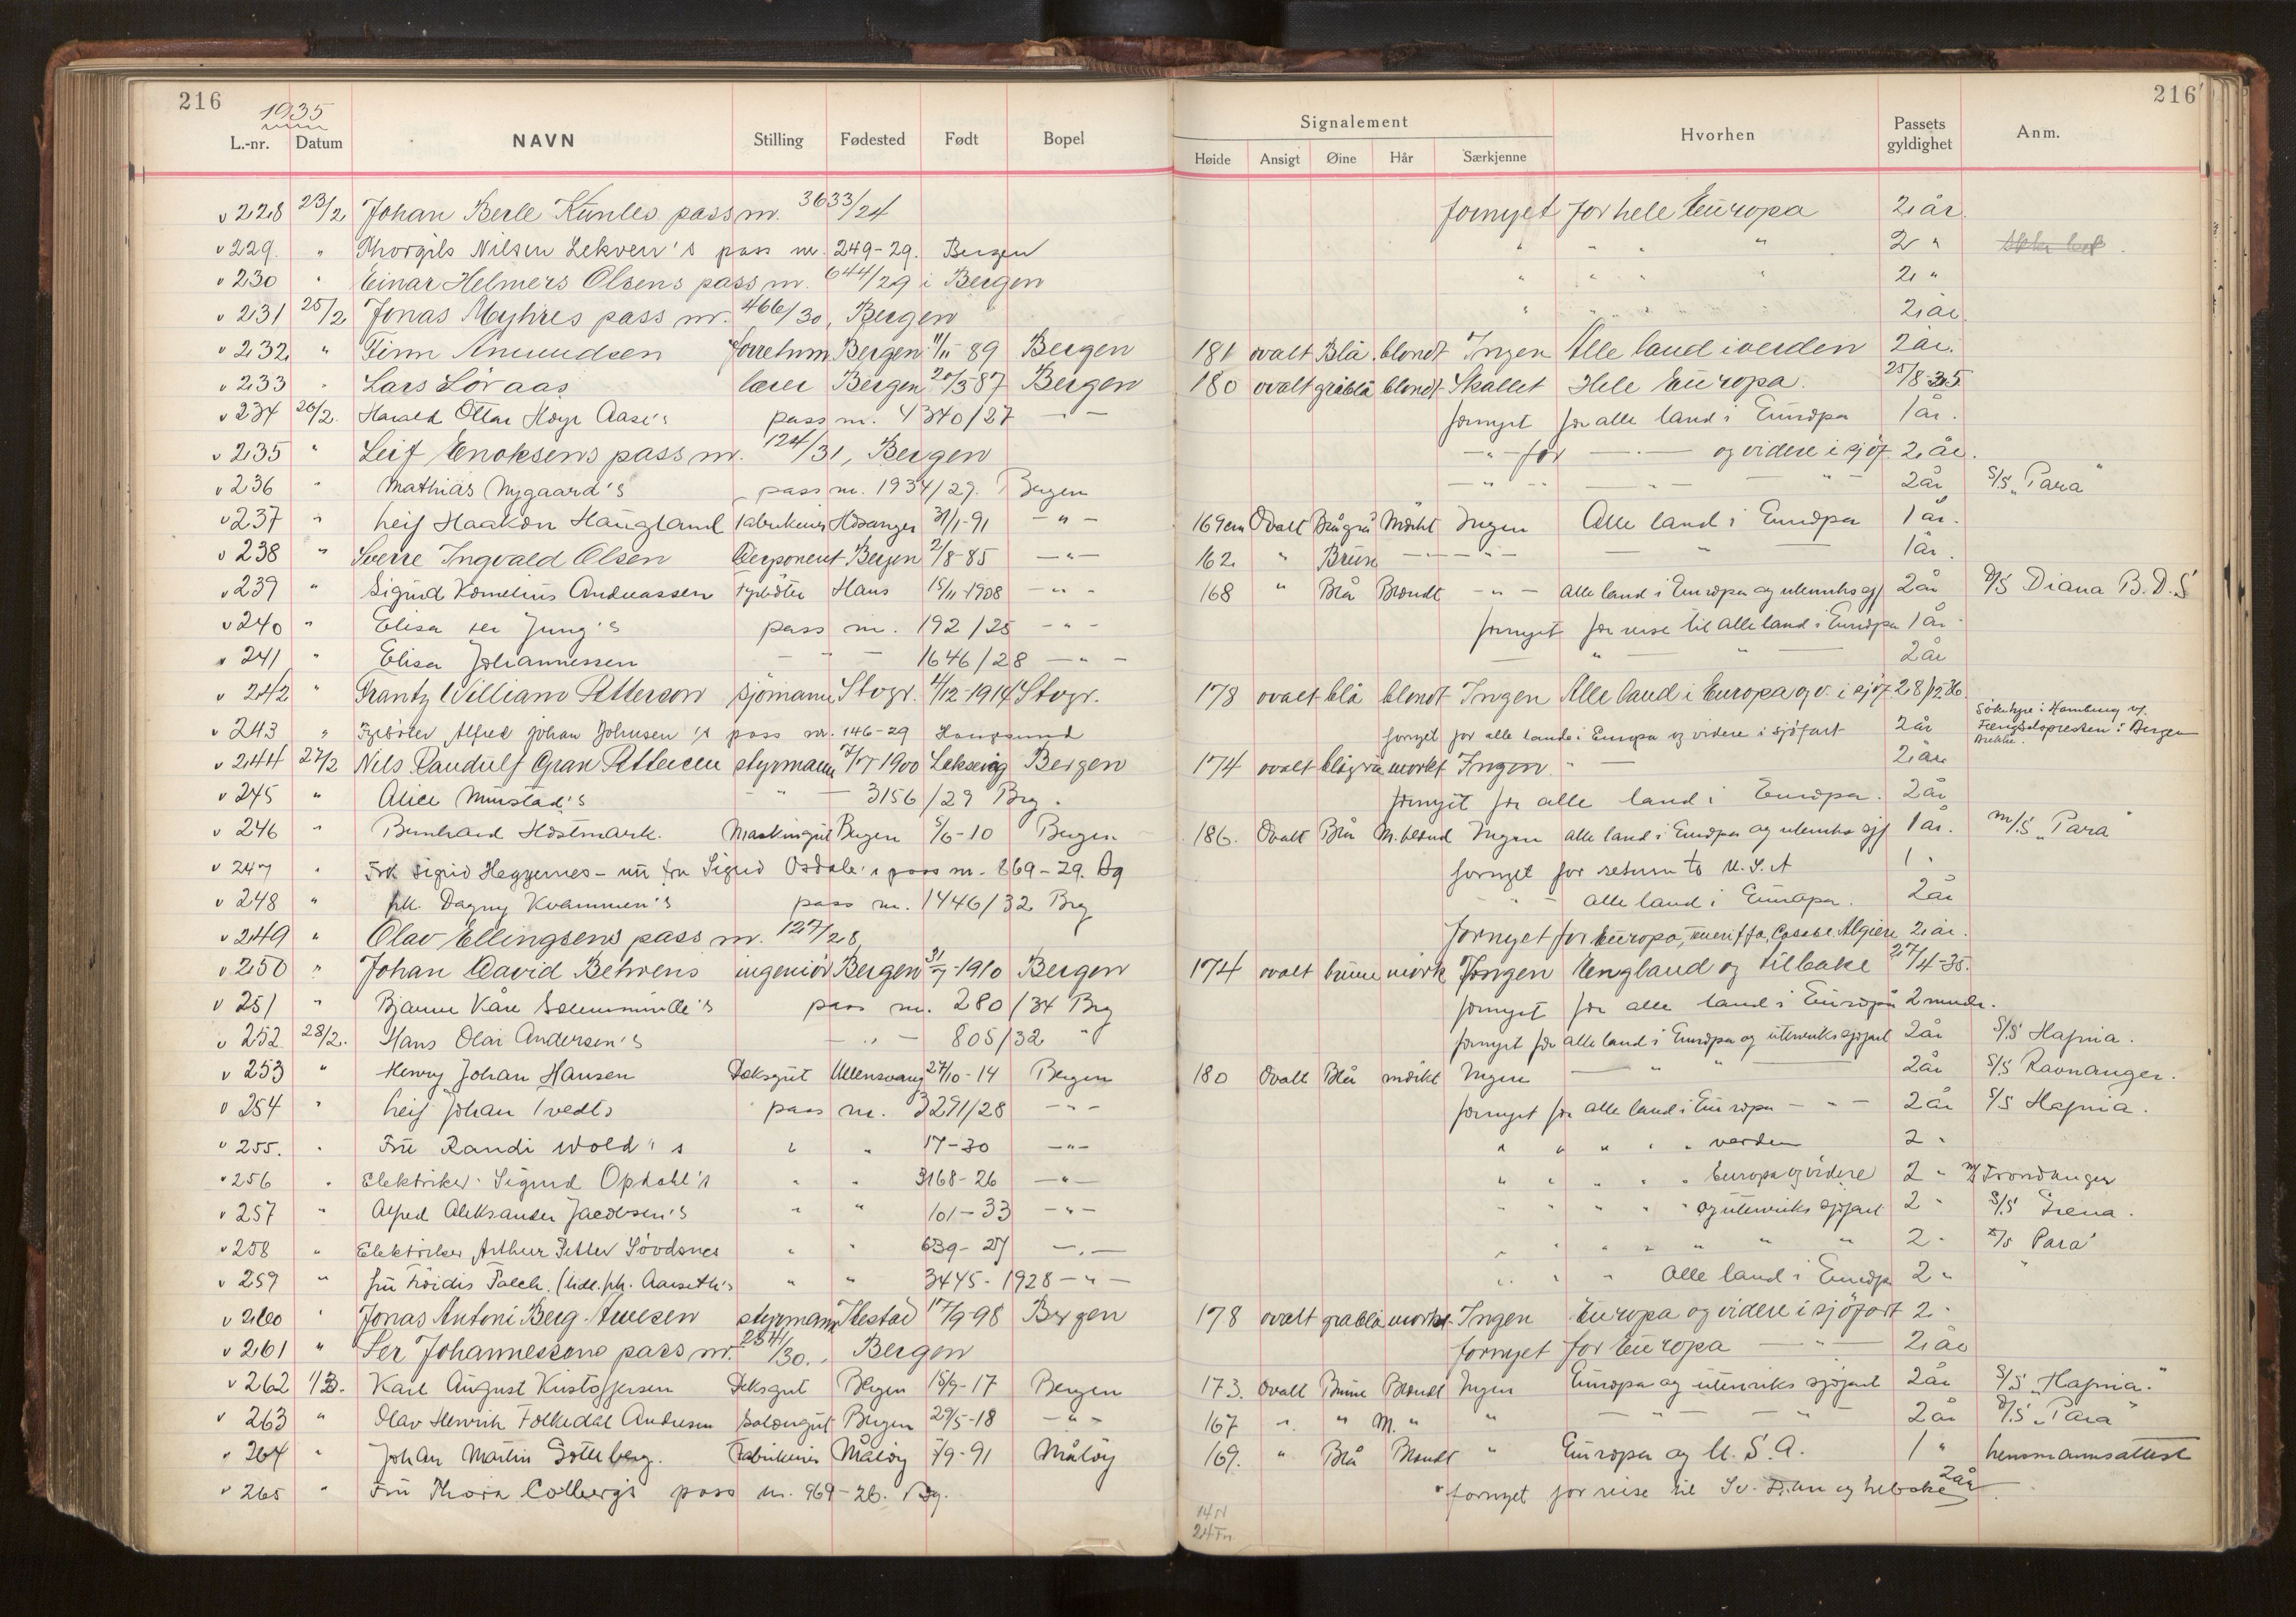 216 1935 216
L.-nr. Datum NAVN Stilling Fødested Født Bopel Signalement Hvorhen Passets gyldighet Anm.
Høide Ansigt Øine Hår Særkjenne
v 228 23/2 Johan Berle Kunles pass nr. 3633/24 fornyet for hele Europa 2 år.
v 229. " Thorgils Nilsen Lekven's pass nr. 249-29. Bergen " " " " 2 "
v 230 " Einar Helmers Olsens pass nr. 644/29 i Bergen " " " " 2 "
v 231 25/2 Jonas Myhres pass nr. 466/30, Bergen " " " " 2 år.
v 232 " Finn Amundsen Bergen 89 Bergen 181 ovalt Blå blondt Ingen Alle land i verden 2 år.
v 233 " Lars Løraas lærer Bergen 20/3 87 Bergen 180 ovalt gråblå blondt Skallet Hele Europa. 25/8-35
v 234 26/2. Harald Ottar Aase's pass nr. 4340/27 - " - fornyet for alle land i Europa 1 år.
v 235 " Leif Enoksens pass nr. 124/31, Bergen - " - for - " - og videre i sjøf. 2 år.
v 236 " Mathias Nygaard's pass nr. 1934/29. Bergen - " - - " - - " - 2 år S/S "Para"
v 237 " Leif Haakon Haugland Fabrikeier Hosanger 31/1-91 - " - 169 cm Ovalt Blågrå Mørkt Ingen Alle land i Europa 1 år.
v 238 " Sverre Ingvald Olsen Disponent Bergen 2/8-85 - " - 162. " Brune - " - - " - - " - 1 år.
v 239 " Sigurd Kornelius Andreassen Fyrbøter Haus 15/11-1908 - " - 168 " Blå Blondt - " - Alle land i Europa og utenriks sjf 2 år D/S Diana B.D.S
v 240 " Elisa ter Jung's pass nr. 192/25 - " - fornyet for reise til alle land i Europa 1 år
v 241 " Elisa Johannessen - " - 1646/28 - " - - " - " - 2 år
v 242 " Frantz William Petterson sjømann Stvgr. 4/12-1914 Stvgr. 178 ovalt blå blondt Ingen Alle land i Europa og v. i sjøf. 28/12 36.
v 243 " Fyrbøter Alfred Johan Johnsen's pass nr. 146-29 Haugesund fornyet for alle lande i Europa og videre i sjøfart 2 år Søke hyre i Hamburg
Fengselspresten i Bergen
v 244 27/2 Nils Randulf Gran Pettersen styrmann 1900 Leksvig Bergen 174 ovalt blågrå mørkt Ingen " - 2 år
v 245 " Alice Munstad's - " - 3156/29 Brg. fornyet for alle land i Europa. 2 år
v 246 " Bernhard Høstmark. Maskingut Bergen 5/6-10 Bergen 186. Ovalt Blå M. blond Ingen alle land i Europa og utenriks sjf 1 år. M/S "Para"
v 247 " Frk Sigrid Heggernes - nu fru Sigrid Osdale's pass nr. 869-29. Bg fornyet for return to U.S.A 1 "
v 248 " frk. Dagny Kvammen's pass nr. 1446/32 Brg - " - alle land i Europa. 2 år
v 249 " Olav Ellingsens pass nr. 127/28, fornyet for Europa, Teneriffa, Casabl. Algiere 2 år.
v 250 " Johan David Behrens ingeniør Bergen 31/7-1910 Bergen 174 ovalt brune mørk Ingen England og tilbake 27/4-35.
v 251 " Bjarne Kåre pass nr. 280/34 Brg fornyet for alle land i Europa 2 mndr.
v 252 28/2. Hans Olai Andersen's - " - 805/32 " fornyet for alle land i Europa og utenriks sjøfart 2 år S/S Hafnia.
v 253 " Henry Johan Hansen Dæksgut Ullensvang 27/10-14 Bergen 180 Ovalt Blå mørkt Ingen - " " - 2 år S/S Ravnanger.
v 254 " Leif Johan Tvedts pass nr. 3291/28 - " - fornyet for alle land i Europa - " - 2 år S/S Hafnia.
v 255. " Fru Randi Wold's " " 17-30 - " - " " " " " verden 2 "
v 256 " Elektriker Sigurd Opdahl's " " 3168-26 - " - " " " " " Europa og videre 2 " M/S Trondanger
v 257 " Alfred Aleksander Jacobsen's " " 101-33 - " - " " " " " og utenriks sjøfart 2 " S/S Irena.
v 258 " Elektriker Arthur Petter Søvdsnes " " 639-27 - " - " " " " " " " 2 " "Para"
v 259 " fru Frøidis Falch. (tidl. frk. Aarseth's " " 3445-1928 - " - " " " Alle land i Europa 2 "
v 260 " Jonas Antoni Berg-Arnesen styrmann 17/9-98 Bergen 178 ovalt gråblå mørkt Ingen Europa og videre i sjøfart 2 "
v 261 " Per Johannessens pass nr. 2541/30., Bergen fornyet for Europa - " - 2 år
v 262 1/3. Karl August Kristoffersen Deksgut Bergen 15/9-17 Bergen 173. Ovalt Brune Blondt Ingen Europa og utenriks sjøfart 2 år S/S "Hafnia."
v 263 " Olav Henrik Folkedal Andresen Salongut Bergen 29/5-18 - " - 167 " " M. " " - " - - " - 2 år D/S "Para"
v 264 " Johan Martin Fabrikeier Måløy 7/9-91 Måløy 169. " Blå Blondt " Europa og U.S.A. 1 " lensmannsattest
v 265 " Fru Thora Colbergs pass nr. 969-26. Bg. fornyet for reise til og tilbake 2 år
14 N
24 Fn